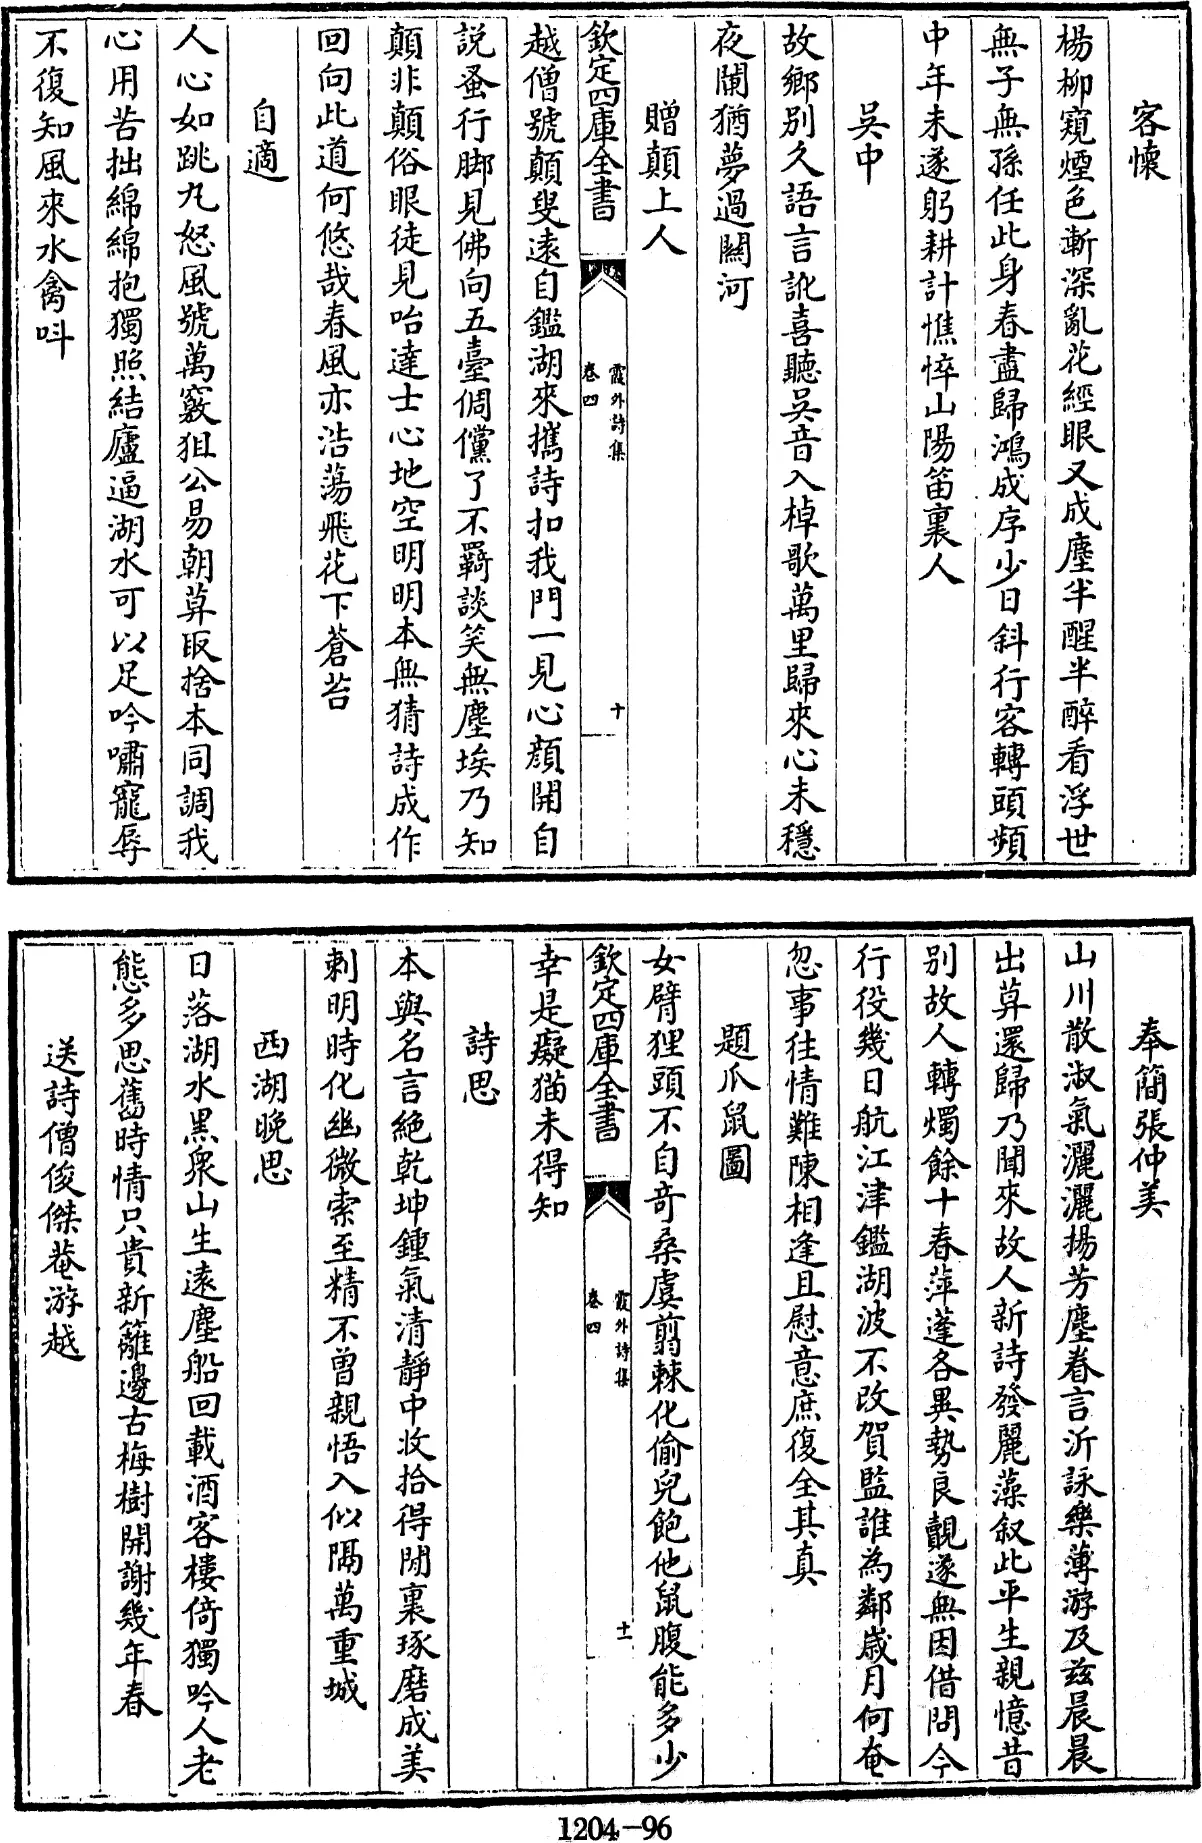 客懷
楊柳窺煙色漸深亂花經眼又成塵半醒半醉看浮世
無子無孫任此身春盡歸鴻成序少日斜行客轉頭頻
中年未遂躬耕計憔悴山陽笛裏人
吳中
故鄉别久語言訛喜聽吳音入棹歌萬里歸來心未穩
夜闌猶夢過關河
贈顛上人
欽定四庫全書
霞外詩集
卷四
十
越僧號顛叟遠自鑑湖來攜詩扣我門一見心顔開自
説蚤行脚見佛向五臺倜儻了不羇談笑無塵埃乃知
顛非顛俗眼徒見咍達士心地空明明本無猜詩成作
回向此道何悠哉春風亦浩蕩飛花下蒼苔
自適
人心如跳丸怒風號萬竅狙公易朝算取捨本同調我
心用苦拙綿綿抱獨照結廬逼湖水可以足吟嘯寵辱
不復知風來水禽呌
奉簡張仲美
山川散淑氣灑灑揚芳塵眷言沂詠樂薄游及兹晨晨
出算還歸乃聞來故人新詩發麗藻叙此平生親憶昔
别故人轉燭餘十春萍蓬各異勢良覿遂無因借問今
行役幾日航江津鑑湖波不改賀監誰為鄰歲月何奄
忽事往情難陳相逢且慰意庶復全其真
題爪鼠圖
女臂狸頭不自奇桑虞翦棘化偷兒飽他鼠腹能多少
欽定四庫全書
霞外詩集
卷四
十一
幸是癡猫未得知
詩思
本與名言絶乾坤鍾氣清靜中收拾得閒裏琢磨成美
刺明時化幽微索至精不曾親悟入似隔萬重城
西湖晚思
日落湖水黒衆山生遠塵船回載酒客樓倚獨吟人老
態多思舊時情只貴新籬邊古梅樹開謝幾年春
送詩僧俊傑菴游越
1204-96